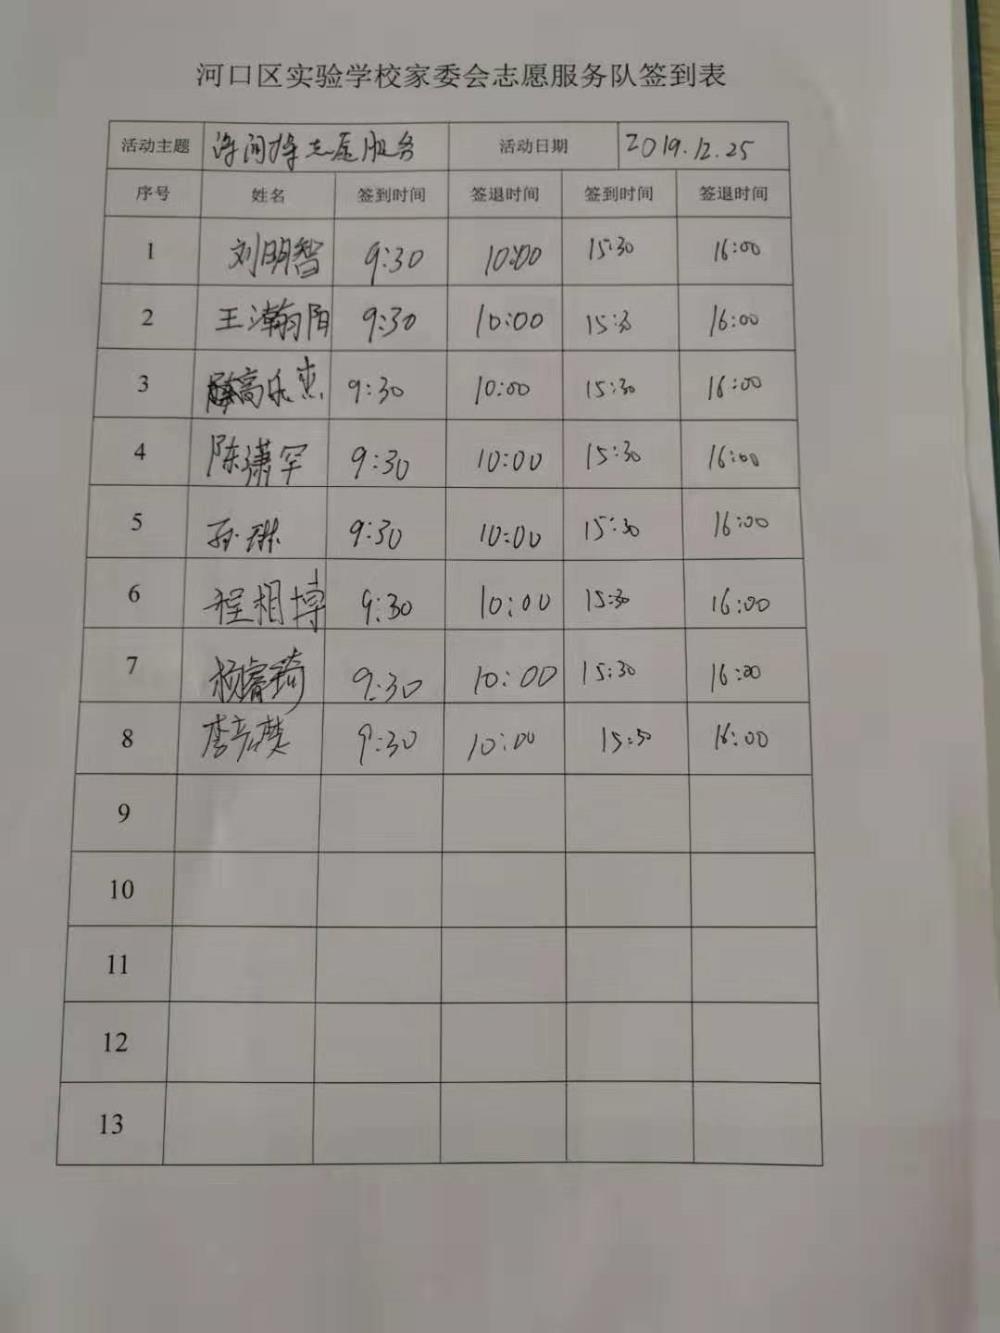 河口区实验学校家委会志愿服务队签到表
活动主题 课间操志愿服务 活动日期 2019.12.25
序号 姓名 签到时间 签退时间 签到时间 签退时间
1 刘明智 9:30 10:00 15:30 16:00
2 王瀚阳 9:30 10:00 15:30 16:00
3 9:30 10:00 15:30 16:00
4 陈潇罕 9:30 10:00 15:30 16:00
5 孙琳 9:30 10:00 15:30 16:00
6 程相博 9:30 10:00 15:30 16:00
7 杨睿琦 9:30 10:00 15:30 16:00
8 9:30 10:00 16:00
9
10
11
12
13